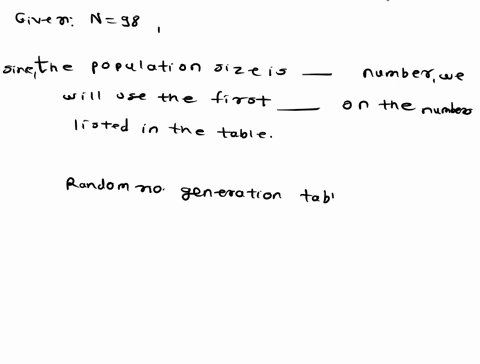 Given: N = 98,
sine, the population size is ___ number, we
will use the first ___ on the number
listed in the table.
Random no. generation tabl